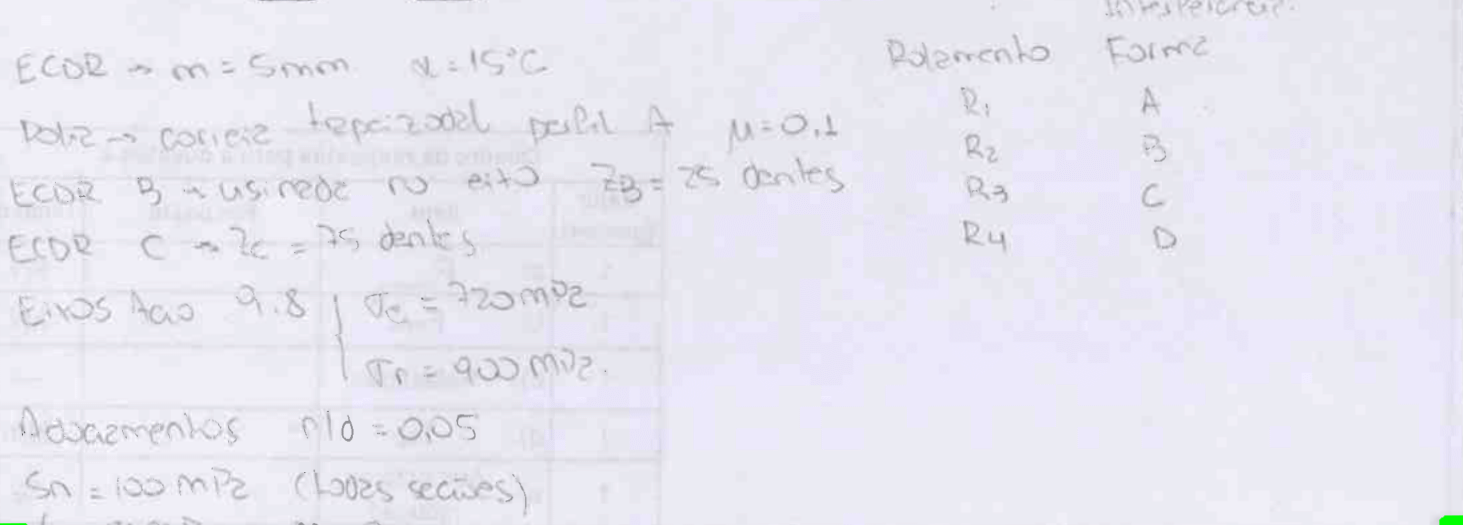 ECDR → m = 5mm α = 15°C
Polia → correia trapeizodal perfil A μ = 0,1
ECDR B → usinada no eixo ZB = 25 dentes
ECDR C → Zc = 75 dentes
Eixos Aço 9.8 { σe = 720 MPa
σr = 900 MPa.
Adoçamentos r/d = 0,05
Sn = 100 MPa (todas seções)
Rolamento Forma
R1 A
R2 B
R3 C
R4 D